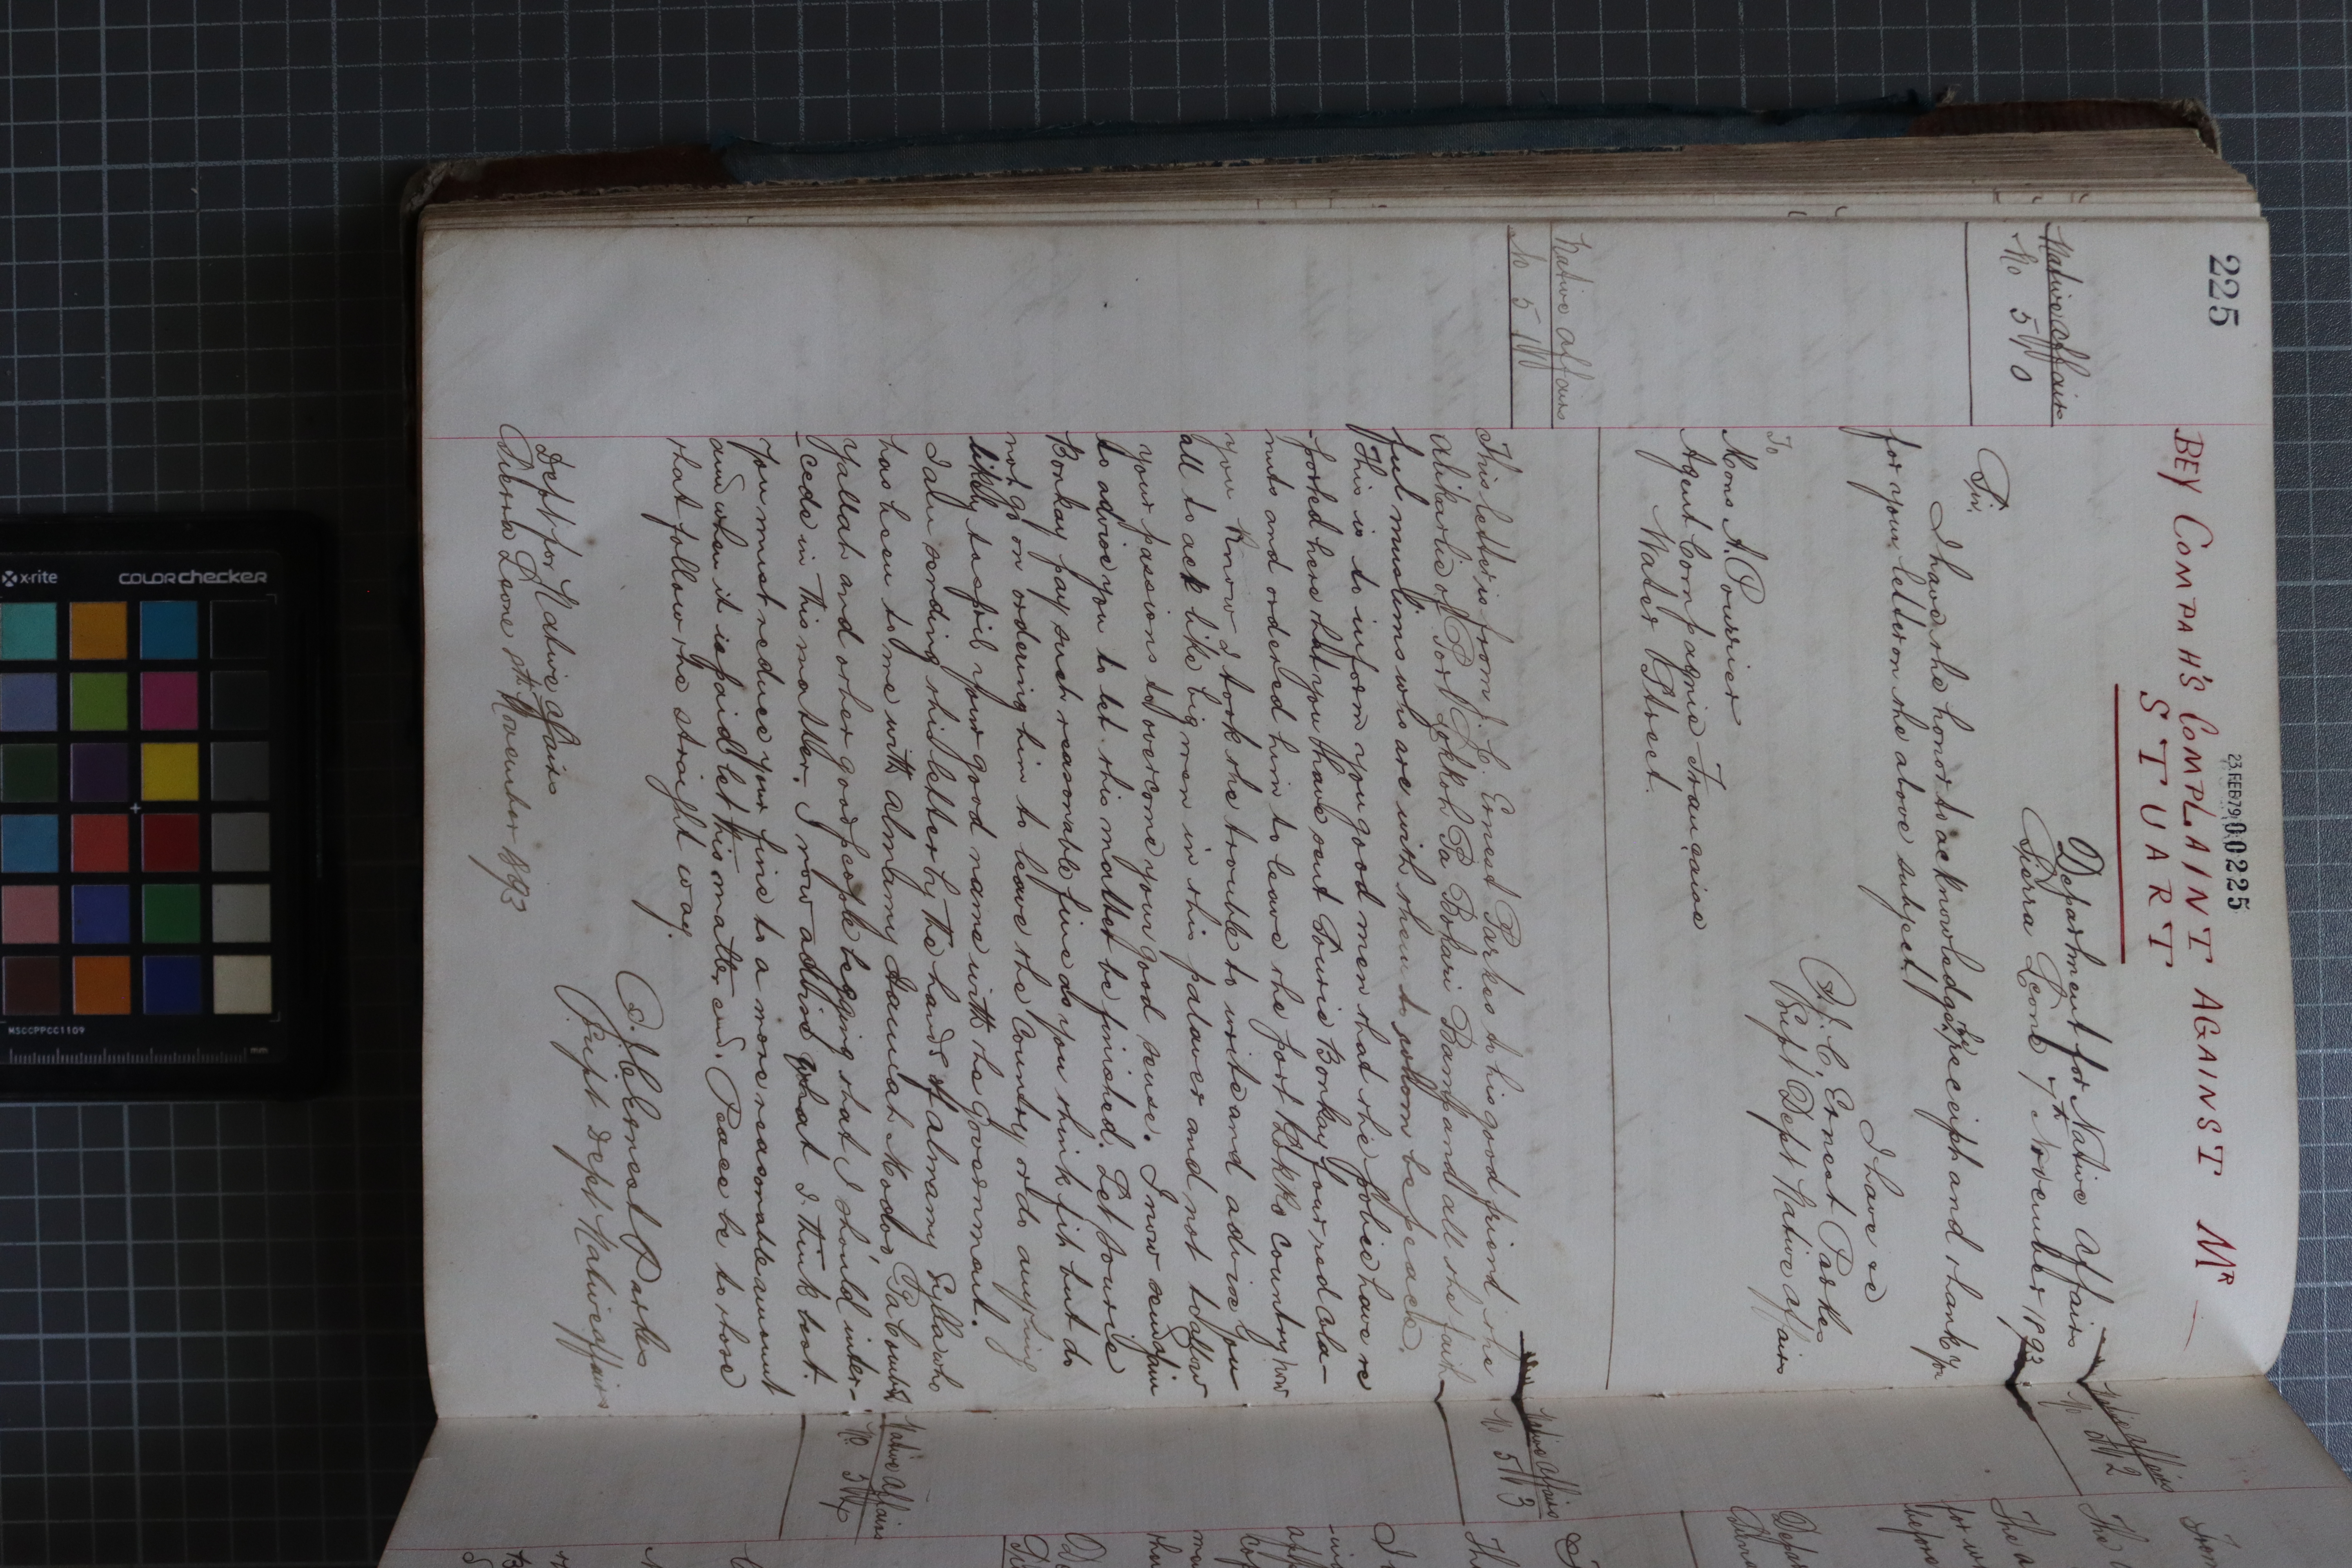 225
23 FEB 79 00225
BEY COMPAH'S COMPLAINT AGAINST MR
STUART
Native Affairs
No 540
Department for Native Affairs
Sierra Leone 7th November 1893
Sir,
I have the honor to acknowledge the receipt and thank you
for your letter on the above subject.
I have &c
J. C. Ernest Parkes
Supt Dept Native Affairs
To
Mons A. Pourrier
Agent Compagnie Française
Water Street.
Native Affairs
No 541
This letter is from J. C. Ernest Parkes to his good friend the
Alikarlie of Port Lokkoh Pa Bokari Bamp and all the faith
ful muslims who are with them to whom be peace.
This is to inform you good men that the police have re
ported here that you have sent Sourie Bonkay four red cola-
nuts and ordered him to leave the Port Lokko country, now
you know I took the trouble to write and advise you
all to act like big men in this palaver and not to allow
your passions to overcome your good sense. I now send again
to advise you to let this matter be finished. Let Sourie
Bonkay pay such reasonable fine as you think fit but do
not go on ordering him to leave the Country or do anything
likely to spoil your good name with the Government.
I am sending this letter by the hands of Almamy who
has been to me with Almamy Modoo Pa
Yallah and other good people begging that I should inter-
cede in this matter. I now advise what I think best.
You must reduce your fine to a more reasonable amount
and when it is paid let this matter end. Peace be to those
that follow the straight way.
J. C. Ernest Parkes
Supt Dept Native Affairs
Dept for Native Affairs
Sierra Leone November 1893
Native Affairs
No 542
Native Affairs
No 543
Native Affairs
No 544